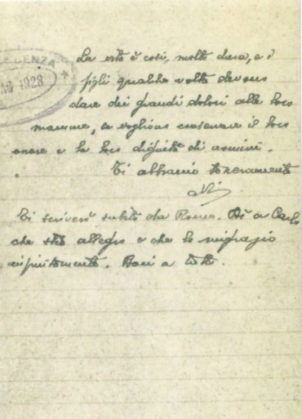 LENZA
1928
La vita è così, molto dura, e i
figli qualche volta devono
dare dei grandi dolori alle loro
mamme, se vogliono conservare il loro
onore e la loro dignità di uomini.
Ti abbraccio teneramente
Ti scriverò subito da Roma. Di' a Carlo
che stia allegro e che lo ringrazio
infinitamente. Baci a tutti.